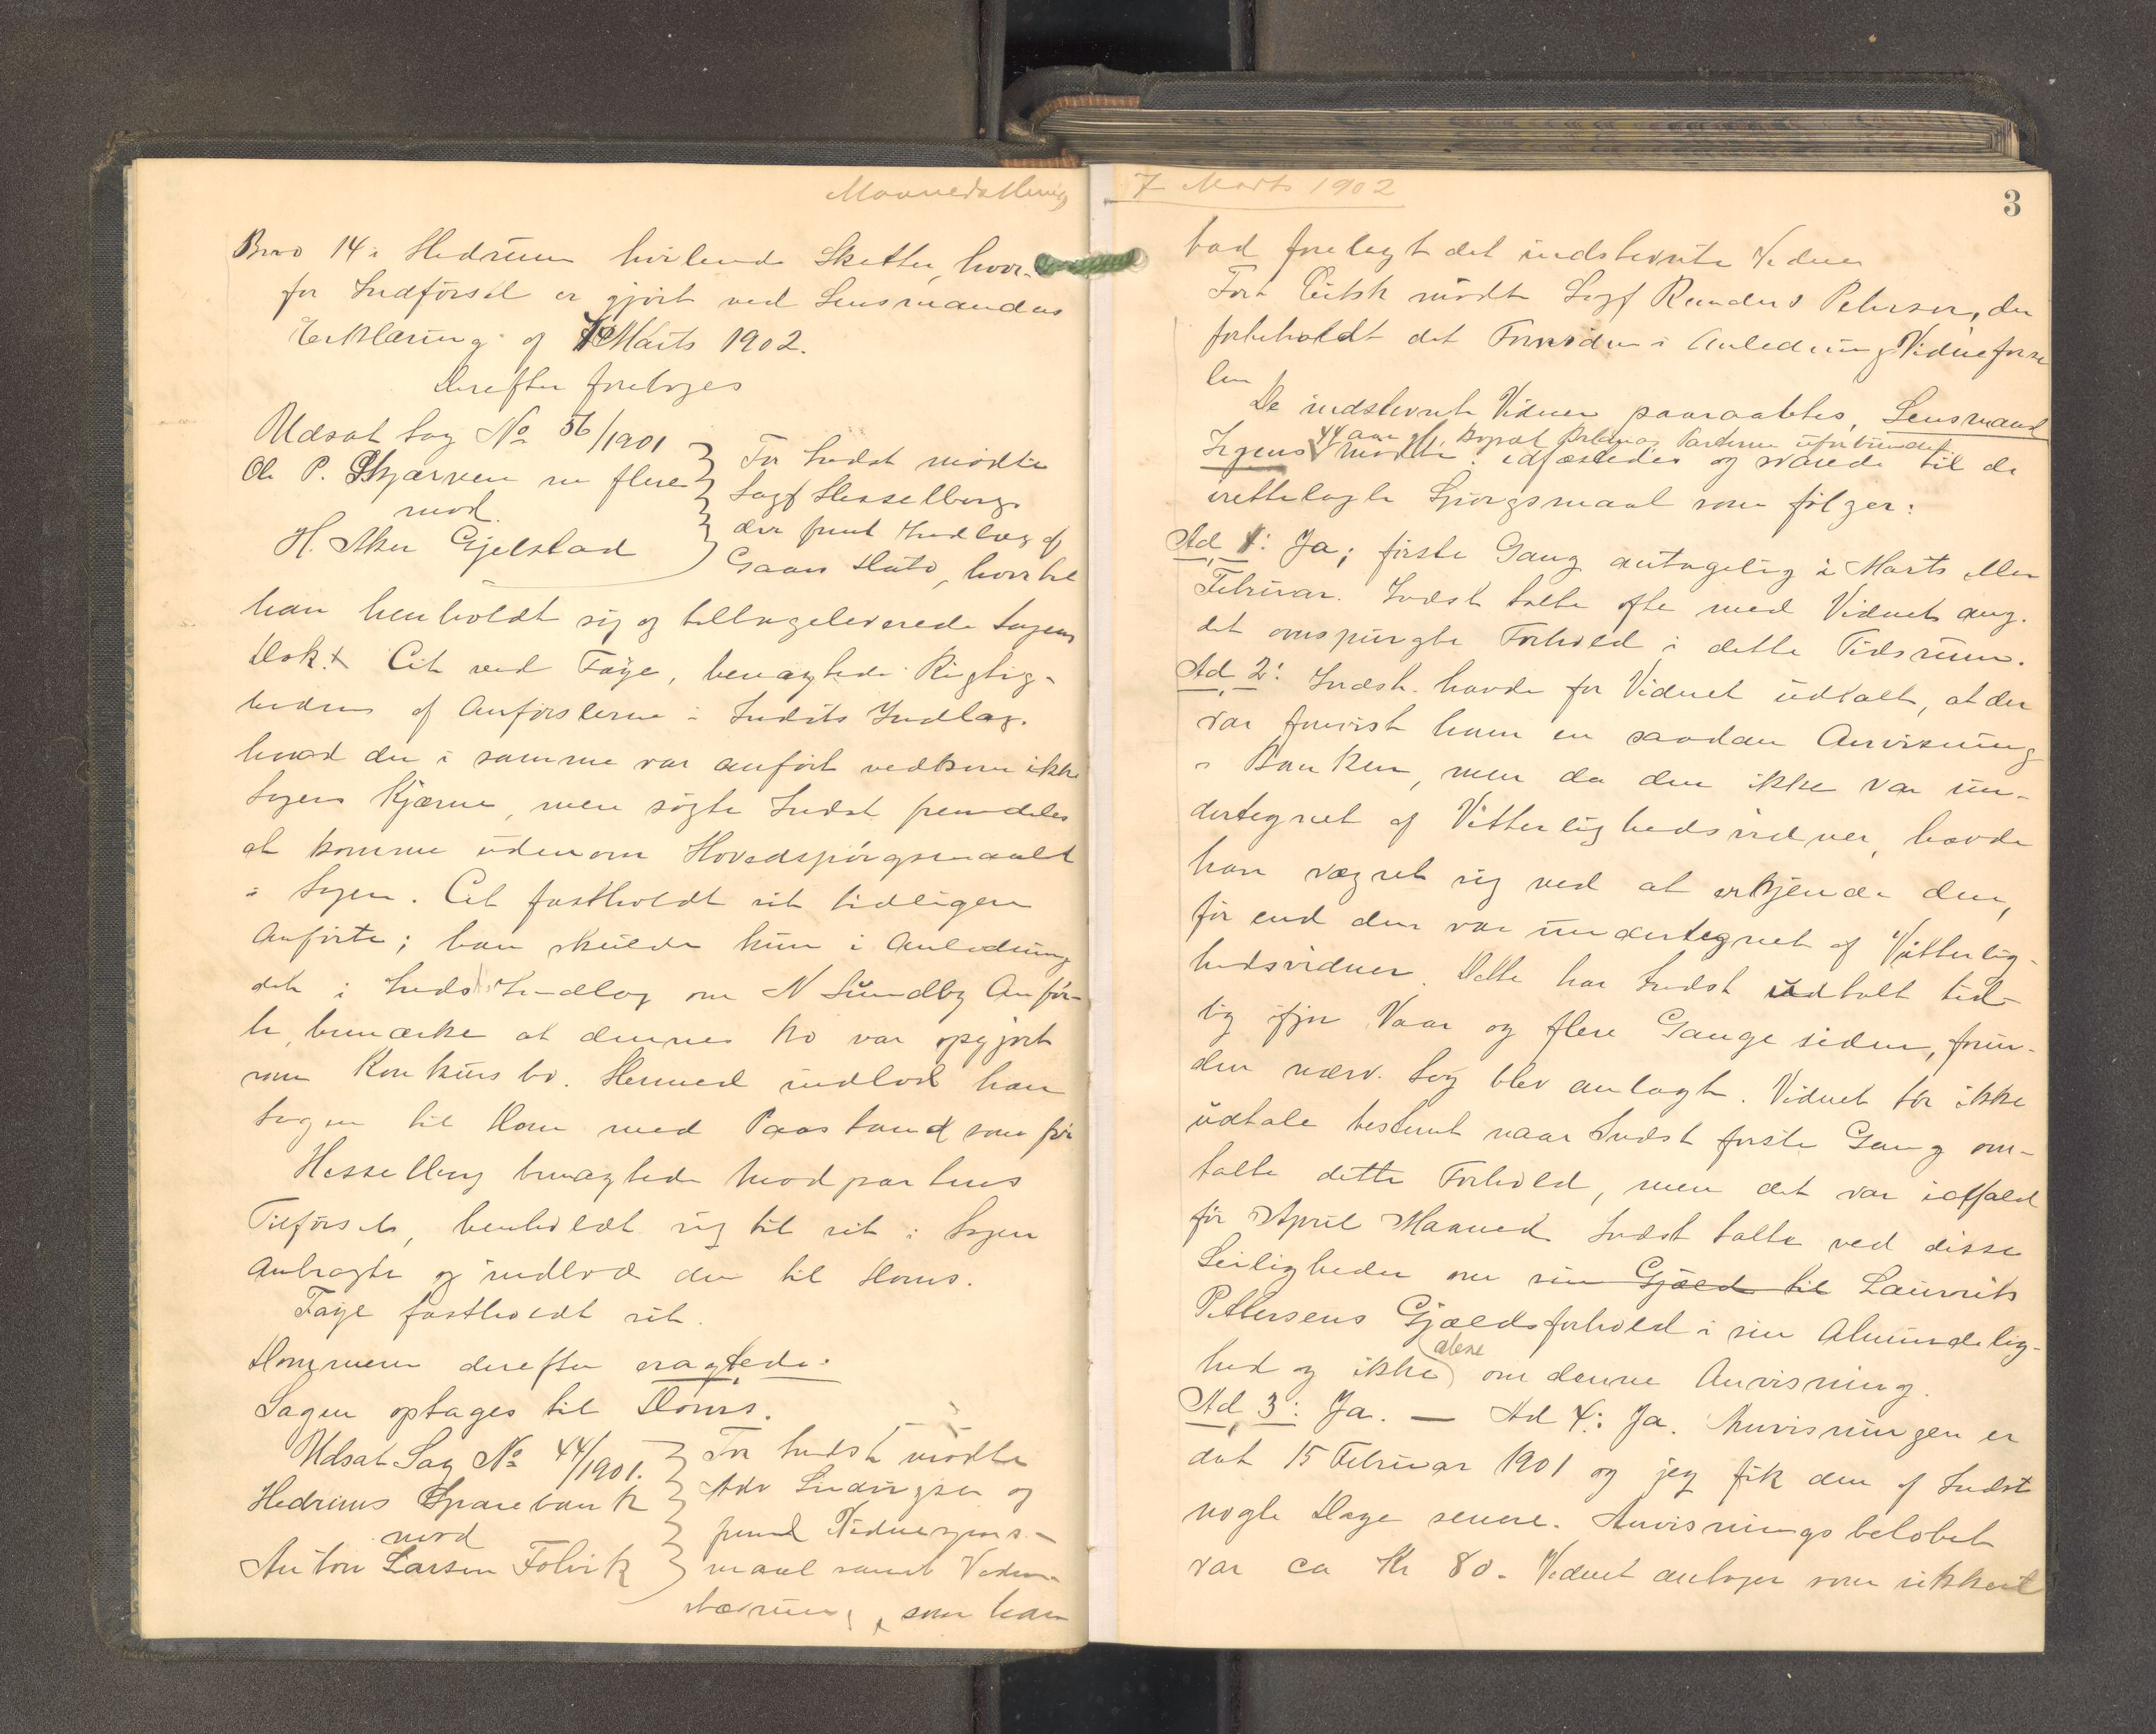 Maanedsthing
Brno 14 i Hedrum hvilende Skatter, hvor-
for Indførsel er gjort ved Lensmandens
Erklæring af 7 Marts 1902.
Derefter foretoges
Udsat Sag No 56/1901
Ole P. Skjærven m flere
mod
H. Aker Gjelstad
For Indst mødte
Sagf Hesselberg
der freml Indlæg af
Gaars Dato, hvortil
han henholdt sig og tilbageleverede Sagens
Dok. Cit ved Faye, benægtede Rigtig-
heden af Anførslerne i Indsts Indlæg.
hvad der i samme var anført vedkom ikke
Sagens Kjærne, men søgte Indst fremdeles
at komme udenom Hovedspørgsmaalet
i Sagen. Cit fastholdt sit tidligere
Anførte; han skulde kun i Anledning
det i Indsts Indlæg om N Sundby Anfør-
te, bemærke at dennes Bo var opgjort
som Konkursbo. Hermed indlod han
Sagen til Dom med Paastand som før
Hesselberg benægtede Modpartens
Tilførsel, henholdt sig til sit i Sagen
Anbragte og indlod den til Doms.
Faye fastholdt sit.
Dommeren derefter eragtede:
Sagen optages til Doms.
Udsat Sag No 44/1901.
Hedrums Sparebank
mod
Anton Larsen Folvik
For Indst mødte
Adv
og
freml Vidnespørgs-
maal samt Vidne-
stævning, som han
7 Marts 1902
3
lod forelagt det indstevnte Vidne
For Citsk mødte Sagf Randers Pehrson, der
forbeholdt det Fornødne i Anledning Vidneførse
len
De indstevnte Vidner paaraabtes, Lensmand
44 aar gl. Parterne uforbundet
mødte. edfæstedes og svarede til de
irettelagte Spørgsmaal som følger:
Ad 1: Ja; første Gang antagelig i Marts eller
Februar. Indst talte ofte med Vidnet ang.
det omspurgte Forhold i dette Tidsrum.
Ad 2: Indst. havde for Vidnet udtalt, at der
var forevist ham en saadan Anvisning
i Banken, men da den ikke var un-
dertegnet af Vitterlighedsvidner, havde
han vægret sig ved at erkjende den,
før end den var undertegnet af Vitterlig-
hedsvidner. Dette har Indst udtalt tid-
lig ifjor Vaar og flere Gange siden, forin-
den nærv. Sag blev anlagt. Vidnet tør ikke
udtale bestemt naar Indst første Gang om-
talte dette Forhold, men det var ialfald
før April Maaned. Indst talte ved disse
Leiligheder om sin Gjæld til Laurits
Pettersens Gjældsforhold i sin Almindelig-
alene
hed og ikke om denne Anvisning.
Ad 3: Ja. — Ad 4: Ja. Anvisningen er
dat 15 Februar 1901 og jeg fik den af Indst
nogle Dage senere. Anvisningsbeløbet
var ca Kr 80. Vidnet antager som sikkert